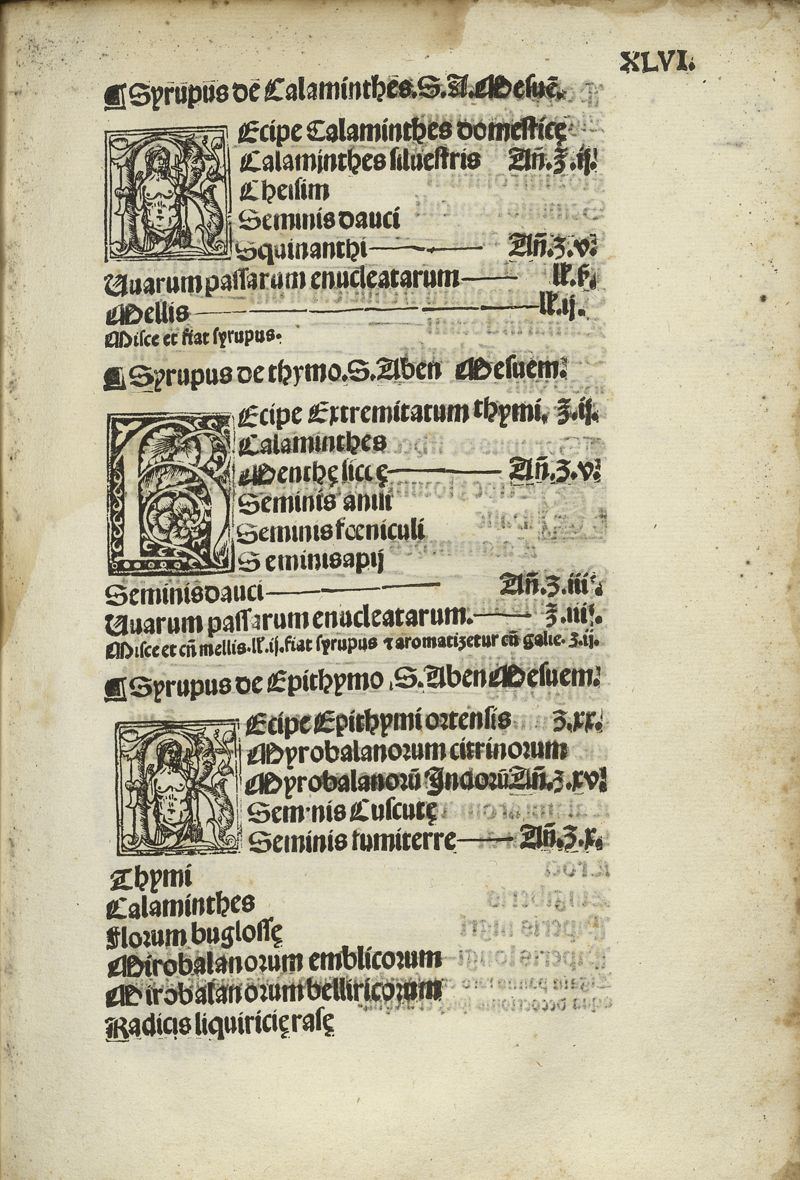 XLVI.
¶ Syrupus de Calaminthes. S. A. Mesuē.
REcipe Calaminthes domesticę
Calaminthes siluestris Añ. ℥. ij.
Cheisim
Seminis dauci
Squinanthi Añ. ʒ. v.
Uuarum passarum enucleatarum lƀ. ſ.
Mellis lƀ. ij.
Misce et fiat syrupus.
¶ Syrupus de thymo. S. Aben Mesuem.
REcipe Extremitatum thymi, ℥. ij.
Calaminthes
Menthę siccę Añ. ʒ. v.
Seminis anisi
Seminis fœniculi
Seminis apij
Seminis dauci Añ. ʒ. iij.
Uuarum passarum enucleatarum. ℥. iiij.
Misce et cū mellis. lƀ. ij. fiat syrupus ⁊ aromatizetur cū galie. ʒ. ij.
¶ Syrupus de Epithymo. S. Aben Mesuem.
REcipe Epithymi ortensis ʒ. xx.
Myrobalanorum citrinorum
Myrobalanorū Indorū Añ. ʒ. xv.
Seminis Cuscutę
Seminis fumiterre Añ. ʒ. x.
Thymi
Calaminthes
Florum buglossę
Mirobalanorum emblicorum
Mirobalanorum belliricorum
Radicis liquiricię rasę